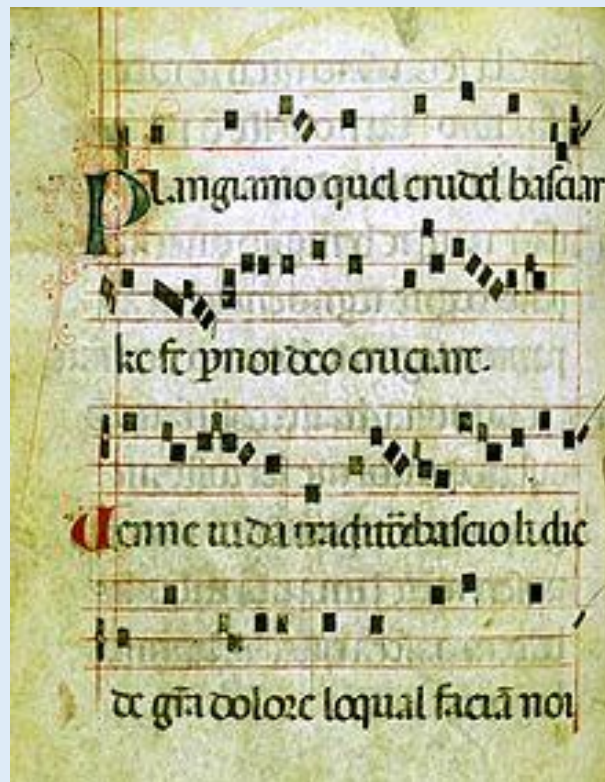 Plangiamo quel crudel basciar
ke fe p noi deo cruciare.
Uenne iuda traditōe bascio li die
de grā dolore loqual faciā noi